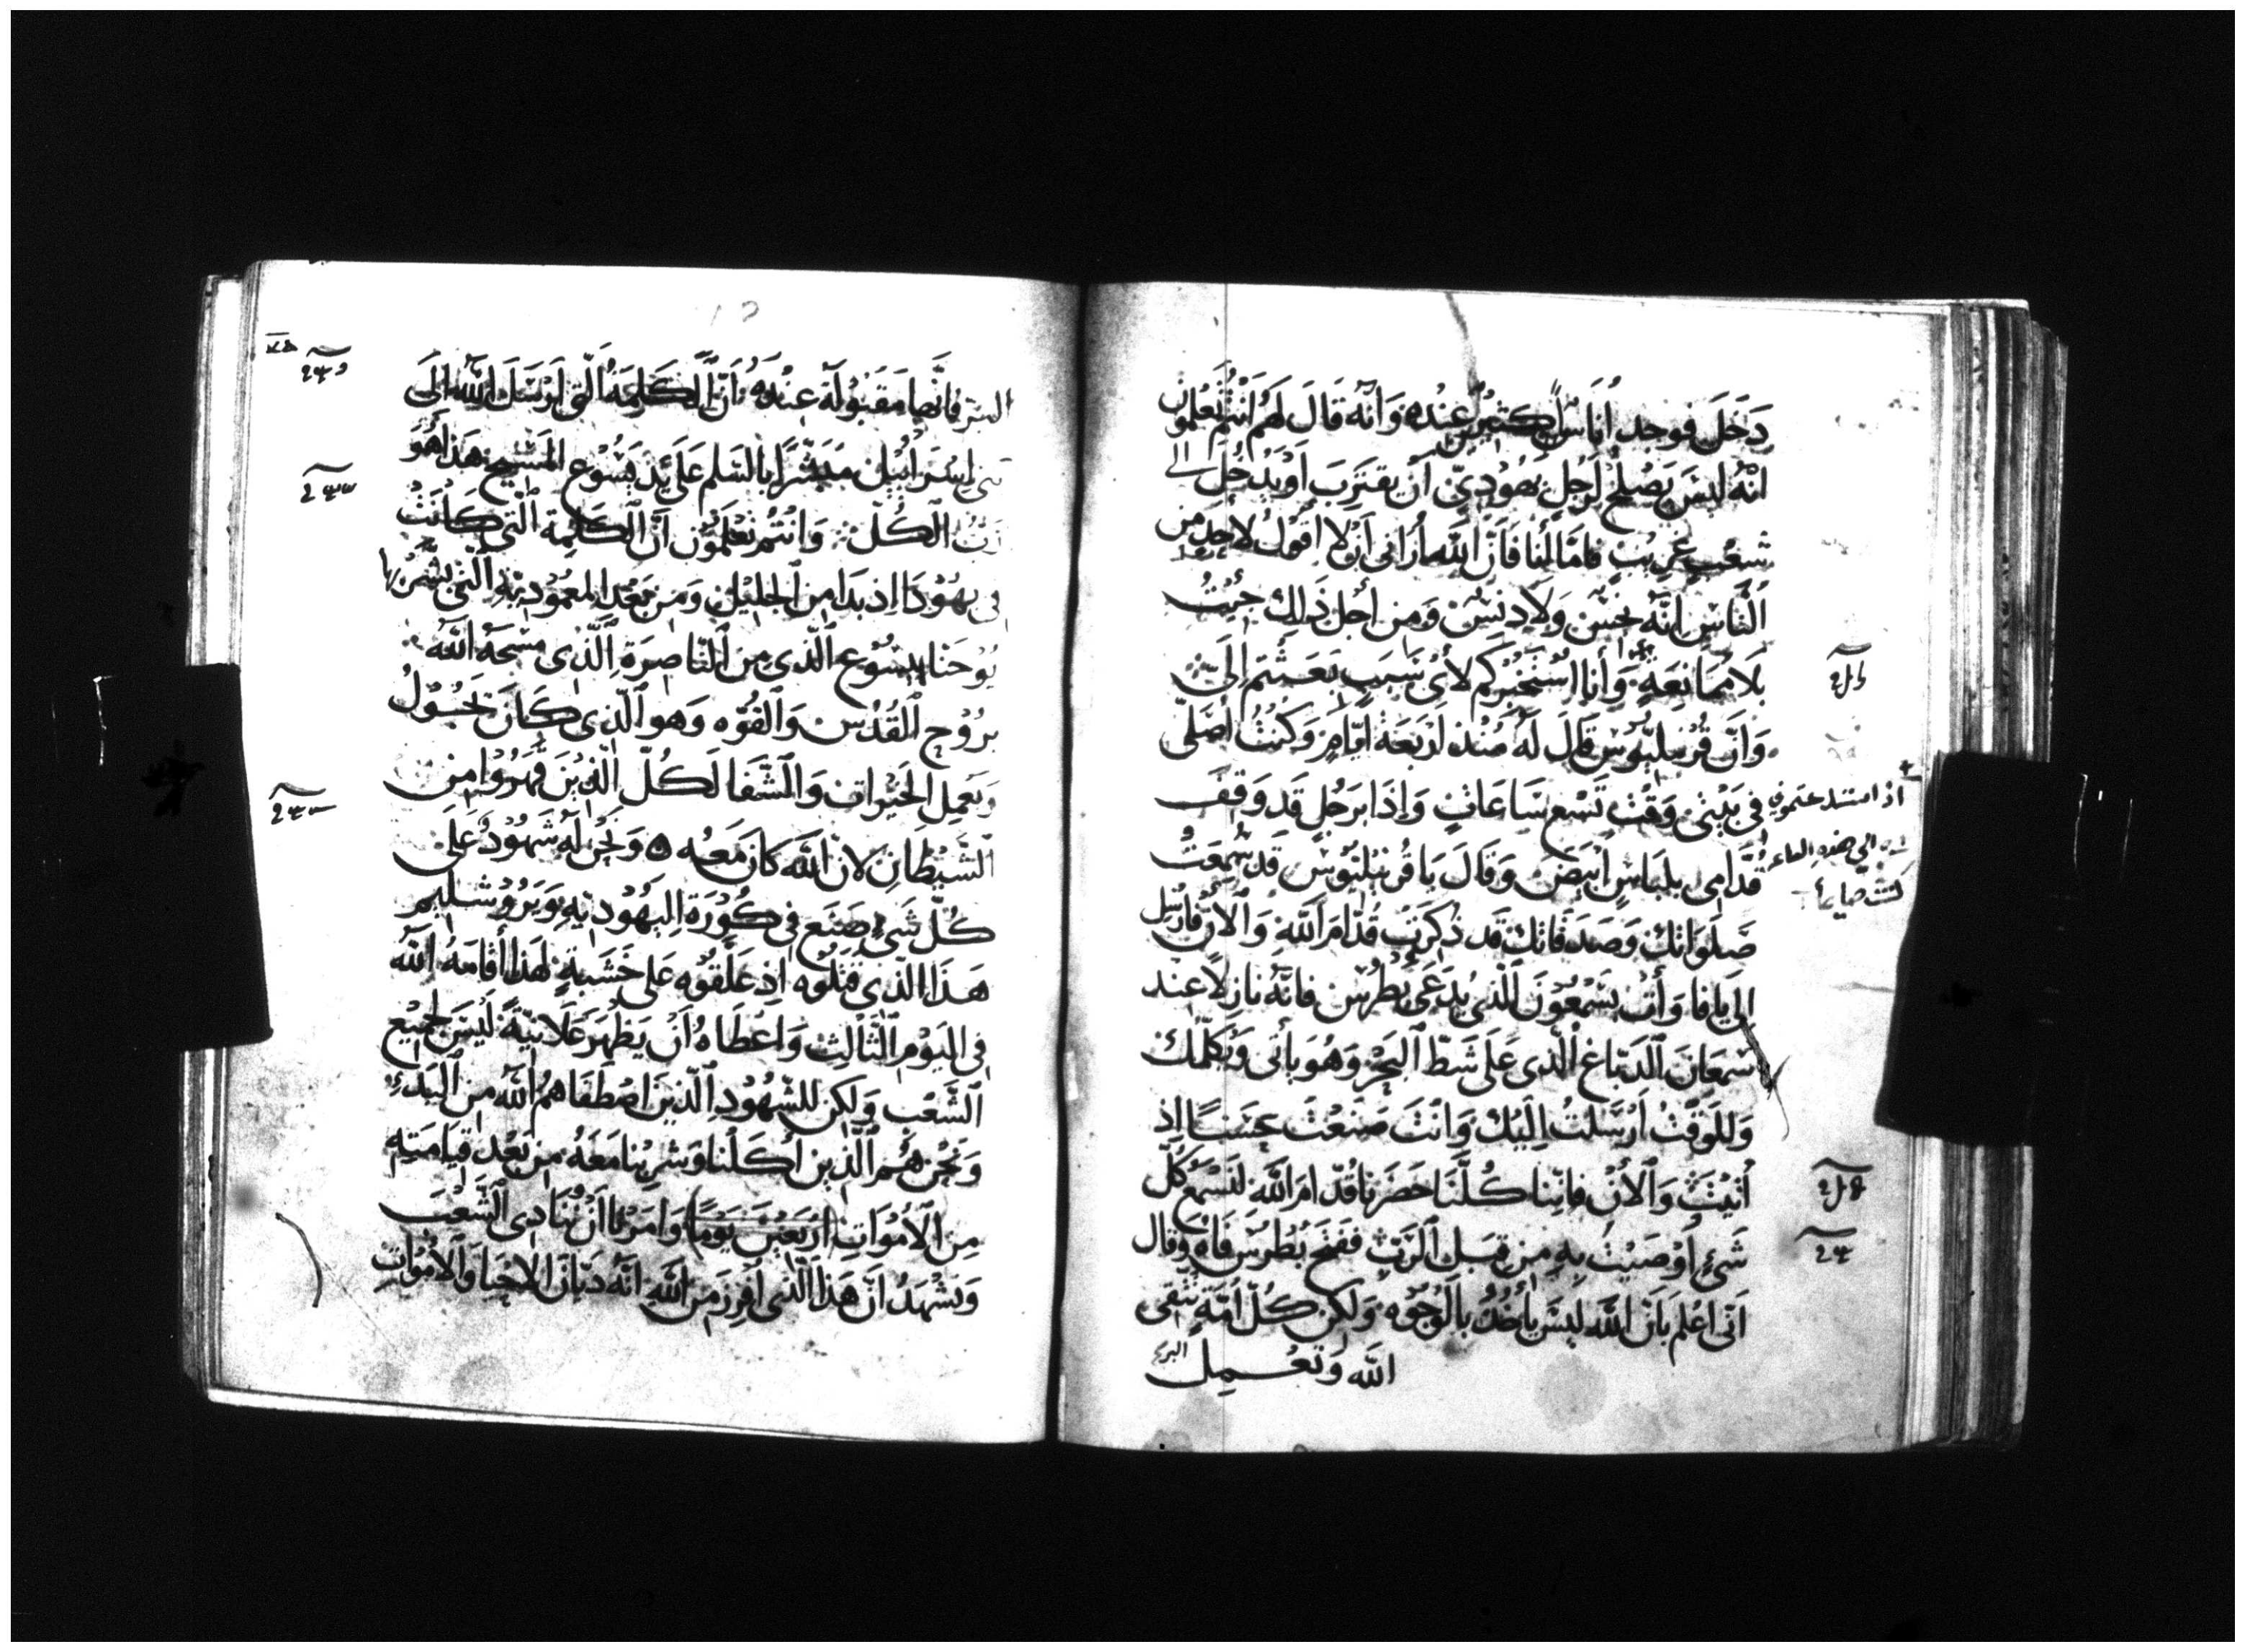 دَخَلَ فوجد أُنَاسٌ كثيرٌ عِنْده وَانّه قَالَ لهَم انْتُم تَعلمُون
انّهُ ليسَ يَصْلحُ لرَجلٍ يَهُوْديّ أن يقتَرِبَ اَوْيَدْخُلَ الى
شعْبٍ غرِيبٍ فامّا أنا فَانّ الله أراني أنْ لا أقول لاحدٍ من
النَّاسِ إنّه نجسْ وَلا دنسْ وَمن أجل ذَلِك جيْتُ
بَلا ممَانِعَةٍ وَأنا اسْتَخْبِرُكم لأىّ سَبَبٍ بَعَثْتم إلَىّ
وَانّ قُرنيليُوسْ قَالَ لهُ مُنْذ ارْبَعَة ايّامٍ وَكنتُ اصَلّى
في بَيْتي وَقْت تَسْع سَاعَاتٍ وَإذا برَجُلٍ قد وَقفَ
قُدّامي بلبَاسٍ ابْيَض وَقالَ يا قُرنيليُوسْ قد سُمِعَتْ
صَلَوَاتكَ وَصَدَقاتكَ قد ذُكِرَتْ قُدّامَ الله وَالآن فأرْسل
إلى يافا وَأت بشمْعُوْنَ الّذي يُدعَى بُطْرُس فانّهُ نازِلاً عند
سمْعَانَ الدَبّاغ الّذي عَلى شطّ البَحْر وَهُوَ يأتى وَيُكلّمك
وَللوَقتْ ارْسَلتُ إليْكَ وَانْتَ صَنَعْتَ حسَنًا إذ
أتيْتَ وَالآنْ فانّنا كُلّنَا حَضَرنا قُدّامَ الله لنَسْمَع كُلّ
شَىْءٍ أوْصَيْتَ بهِ من قِبَل الرَبّ ففتح بُطْرُسْ فَاهُ وَقال
انّى اعْلم بَانّ الله ليسَ يأخُذُ بالوُجُوْه وَلكن كُلّ أمّةٍ تتّقى
الله وَتعْمل البرّ
اذا
الى هذه الساعه
كنت صايما
البرّ فانّها مَقبُوْلة عِنْدهُ انّ الكَلِمَة الّتي ارْسَلَ الله إلَى
بني اسْرَائيل مبَشّرًا بالسَلم عَلى يَد يَسُوْع المَسيح هَذا هُوَ
رَبّ الكُلّ وَانْتُم تعْلَمُوْن أنّ الكَلِمة الّتي كَانَتْ
في يهُوْدَا إذ بَدا من الجَليْل وَمن بَعْد المعْمُوْديّة الّتي بشّر بها
يُوْحَنا يسُوْع الّذي من النّاصِرَة الّذي مسَحهُ الله
برُوْح القُدُس وَالقُوّه وَهو الّذي كَانَ يَجُوْلُ
وَيعْمِل الخَيْرات وَالشّفَا لكُلّ الّذيْنَ قُهِرُوْا من
الشَيْطَانِ لان الله كانَ مَعهُ وَنَحْن لهُ شُهُوْدٌ عَلى
كُلّ شَىْءٍ صَنَع في كُوْرَة اليَهُوْديّه وَيَرُوْشليْم
هَذا الّذي قتَلُوْه إذ عَلّقوْه عَلى خَشَبةٍ لهَذا أقامَهُ الله
في اليَوْم الثَّالث وَاعْطَاهُ أنْ يَظهَر عَلانيّةً ليْسَ لجميْع
الشَعْب وَلكن للشُهُوْد الّذينَ اصْطَفَاهمُ الله من البَدْء
وَنَحْن هُم الّذين أكَلْنا وَشرِبْنا مَعَهُ من بَعْد قيَامَتِه
مِن الأمْوَاتِ (ارْبَعِيْنَ يَوْمًا) وَامَرنا أنْ نُنَادى الشَعْبَ
وَنشْهَدُ انّ هَذا الّذي أُفرِزَ من الله انّهُ دَيّان الاحْيَا وَالأمْوَاتِ